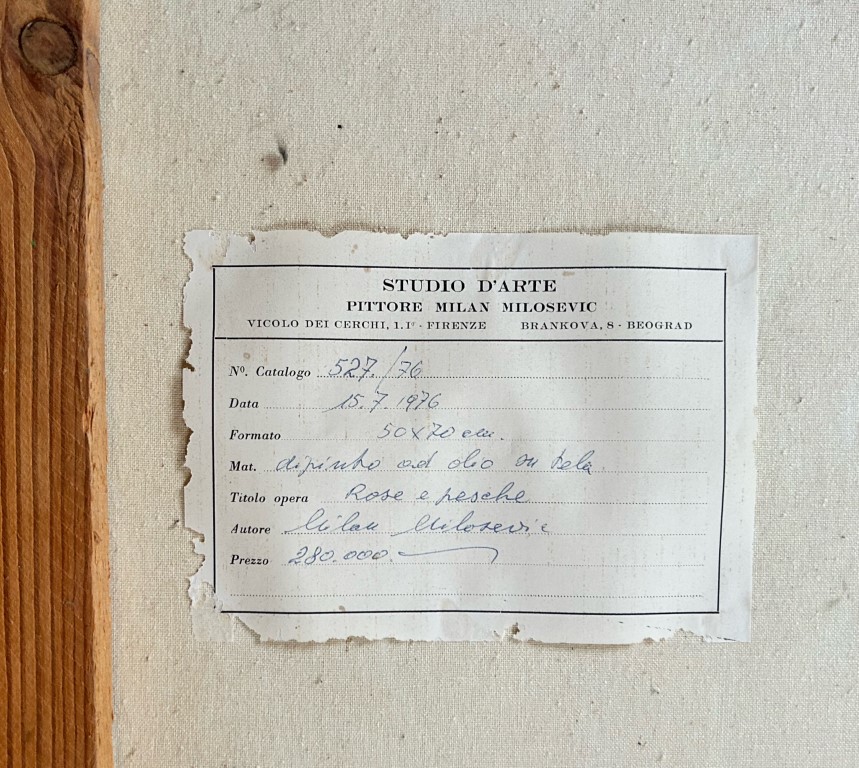 STUDIO D'ARTE
PITTORE MILAN MILOSEVIC
VICOLO DEI CERCHI, 1. Iº - FIRENZE BRANKOVA, 8 - BEOGRAD
Nº. Catalogo 527/76
Data 15.7.1976
Formato 50x70 cm.
Mat. dipinto ad olio su tela
Titolo opera Rose e pesche
Autore Milan Milosevic
Prezzo 280.000.